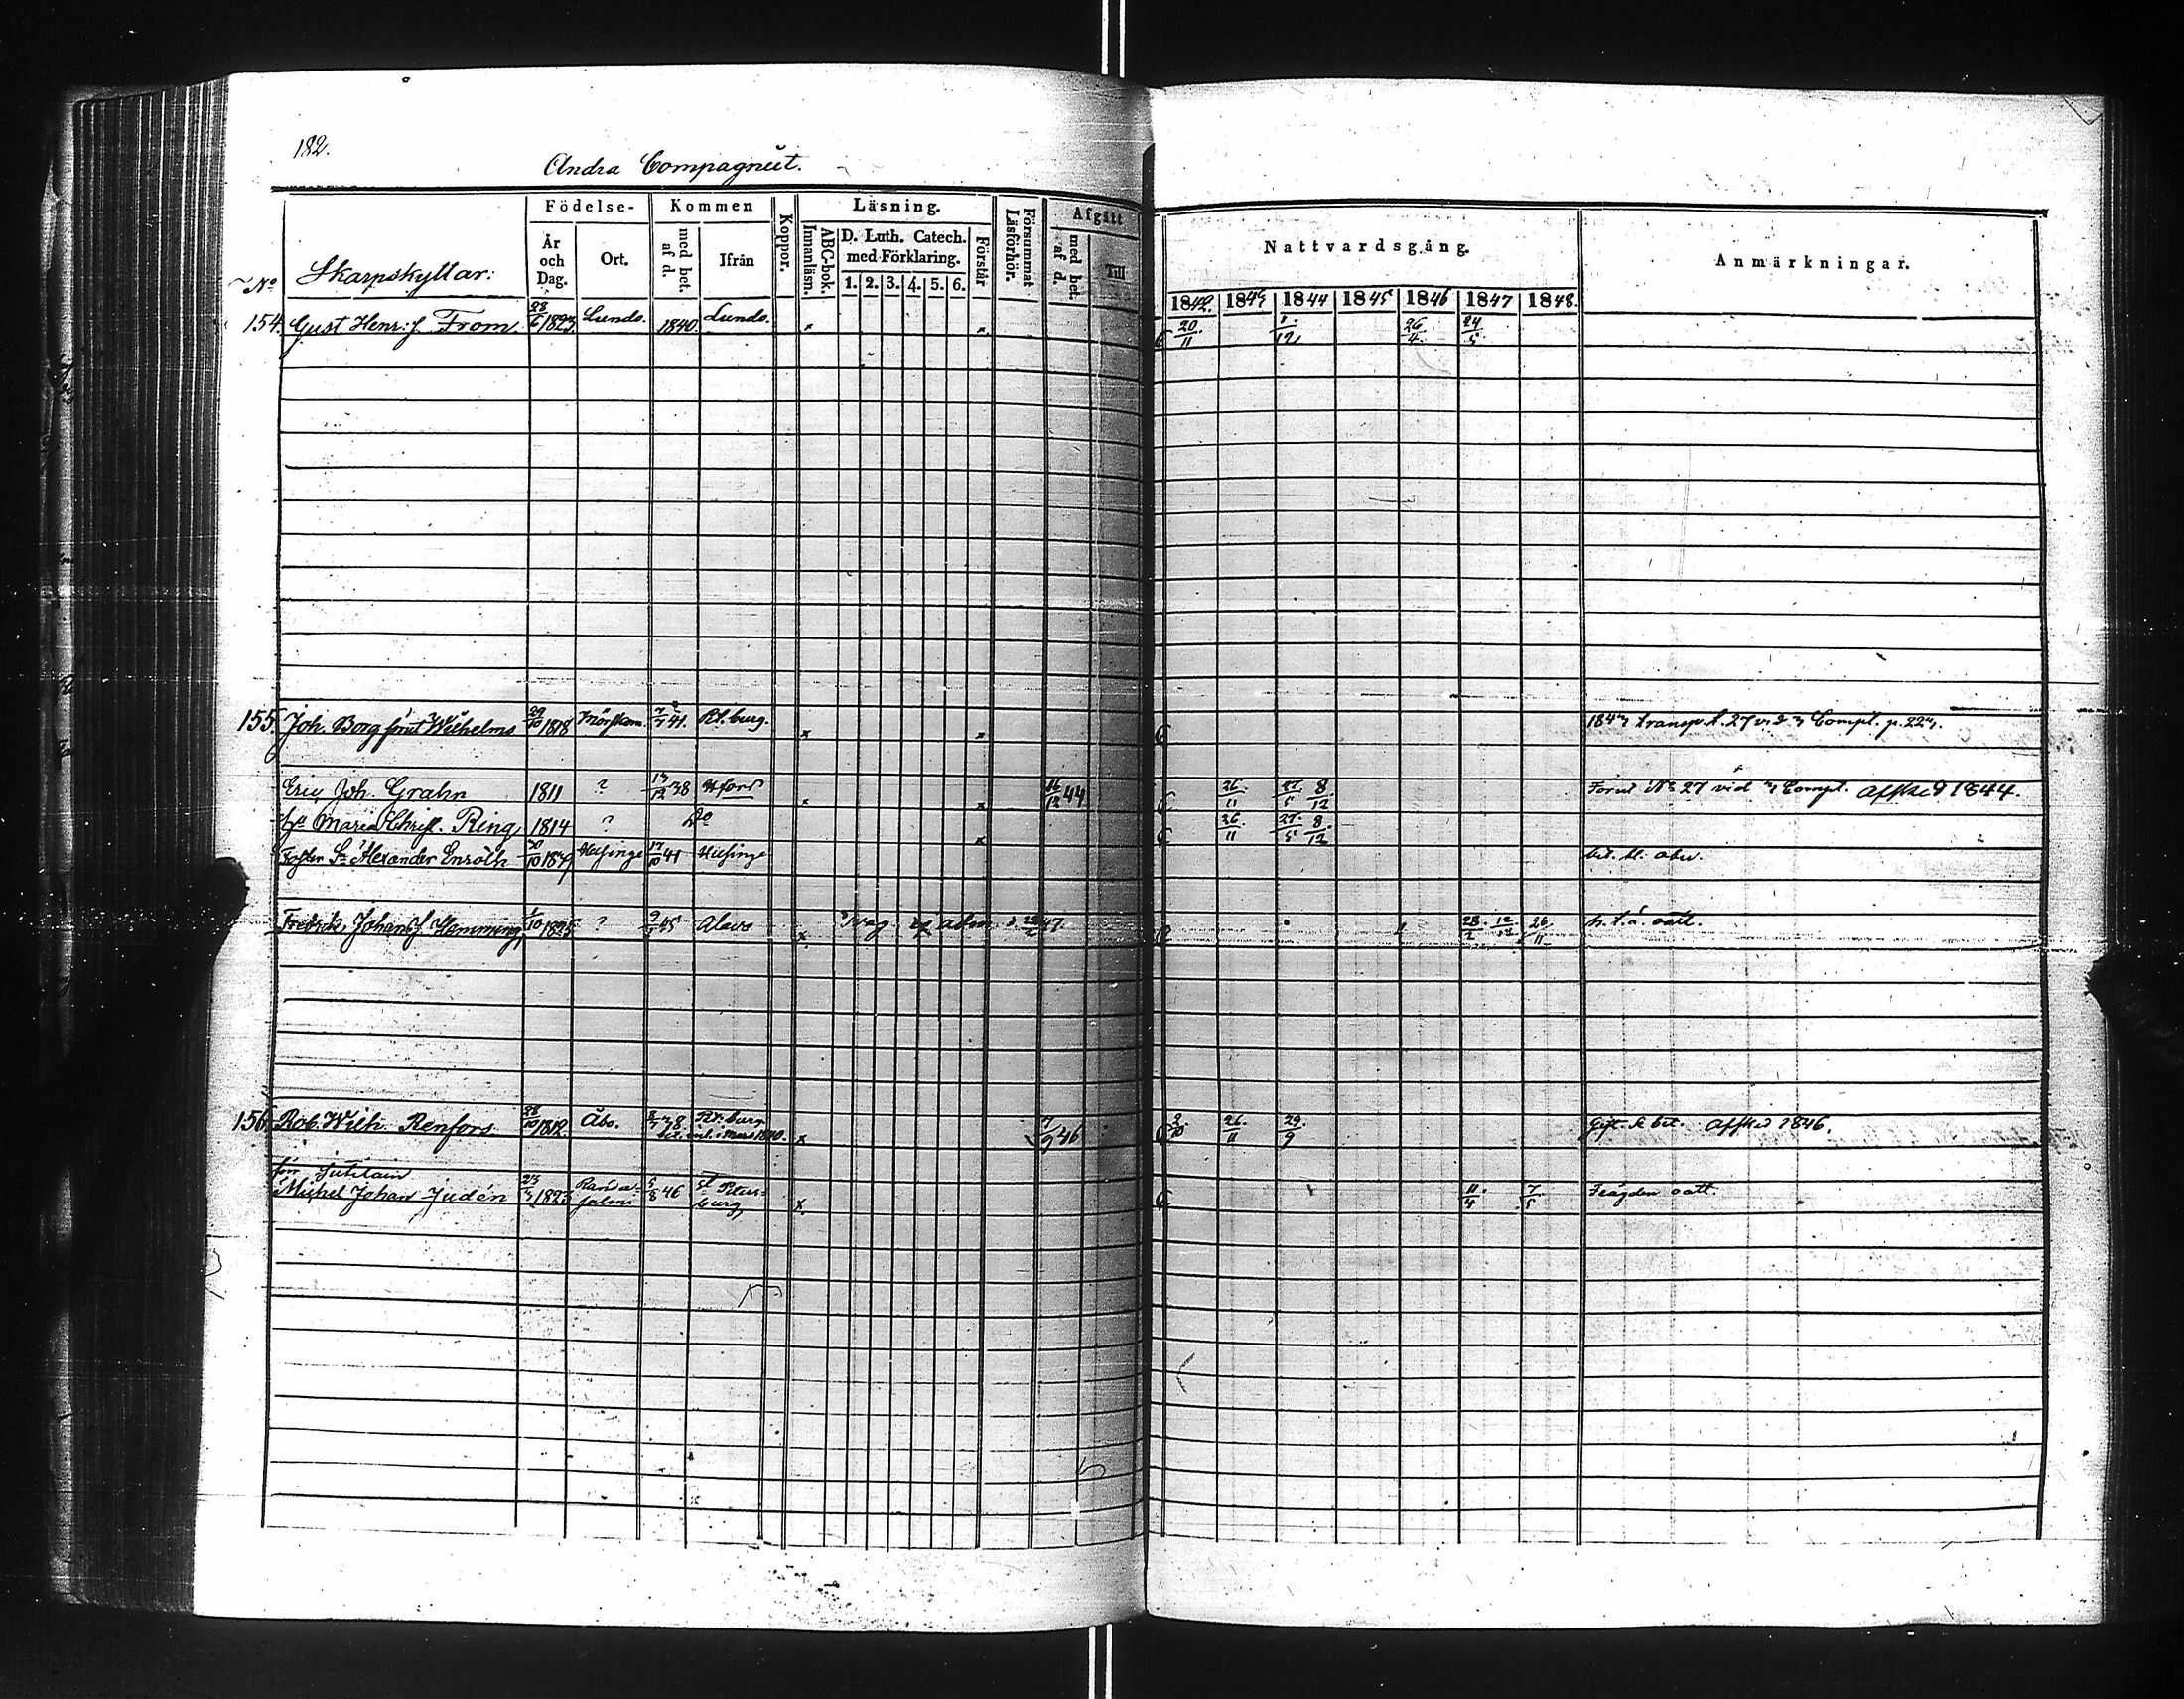 182.
Andra Compagniet.
No Skarpskyttar:
Födelse-
År och Dag.
Ort.
Kommen
med bet. af d.
Ifrån
Koppor.
Läsning.
ABC-bok. Innanläsn.
D. Luth. Catech. med Förklaring.
1. 2. 3. 4. 5. 6.
Förstår
Försummat Läsförhör.
Afgått
med bet. af d.
Till
Nattvardsgång.
1842. 1843 1844 1845 1846 1847 1848.
Anmärkningar.
154. Gust Henr: f From 28/6 1823 Lundo. 1840. Lundo. x x 20/11 1/12 26/4 24/5
155. Joh. Borg förut Wilhelms 29/10 1818 Mörskom 7/7 41. Pt. burg. x x 1843 transp. t. 27 vid 3 Compt. p. 223.
Eric Joh. Grahn 1811 ? 13/12 38 Hfors x x 16/12 44 26/11 27/5 8/12 Förut No 27 vid 3 Compt. Affsked 1844.
hu Maria Christ. Ring 1814 ? Do x 26/11 27/5 8/12
Foster S. Alexander Enroth 30/10 Helsinge 17/10 41 Helsinge bet. bl. abw.
Fredrik Johan f Hemming 1/10 1825 ? 9/7 45 Alavo x 47 28/2 12/12 26/11 h. t. ä. oatt.
156 Rob. Wilh. Renfors. 28/10 1812. Åbo. 8/7 38 Pt: burg x 7/9 46 2/10 26/11 29/9 Gift. & bet. Affsked 1846.
bet. inl. i Mars 1840.
förr Jutilain
Michel Johan Judén 23/3 1823 Randasalmi 5/8 46 St Petersburg x 11/4 7/5 Frägden oatt.